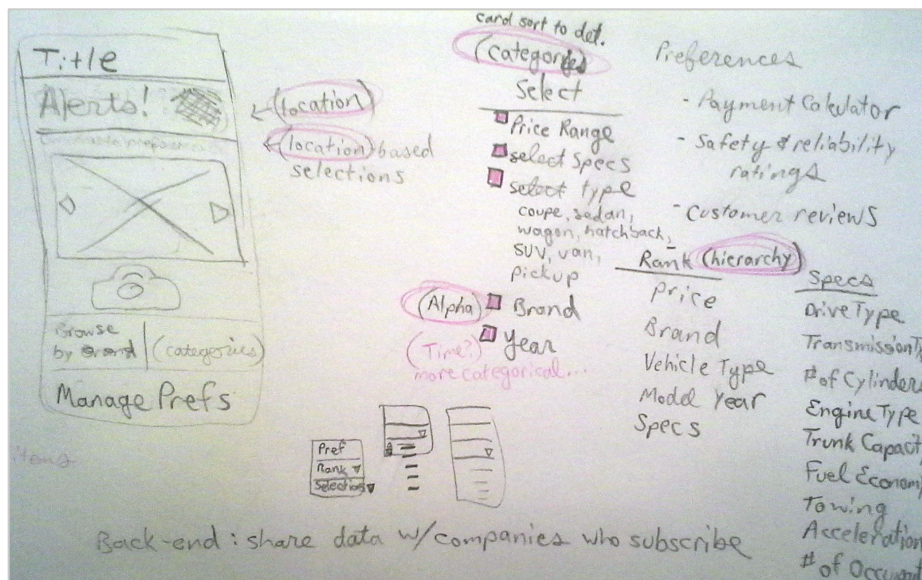 Title
Alerts!
Browse
by
(categories)
Manage Prefs
items
(location)
(location) based
selections
card sort to det.
(categories)
Select
Price Range
select specs
select type
coupe, sedan,
wagon, hatchback,
SUV, van,
pickup
(Alpha)
Brand
(Time?)
Year
more categorical...
Pref
Rank
Selections
Preferences
- Payment Calculator
- Safety & reliability
ratings
- Customer reviews
Rank (hierarchy)
Price
Brand
Vehicle Type
Model Year
Specs
Specs
Drive Type
Transmission Ty
# of Cylinders
Engine Type
Trunk Capacit
Fuel Econom
Towing
Acceleration
# of Occup
Back-end : share data w/companies who subscribe